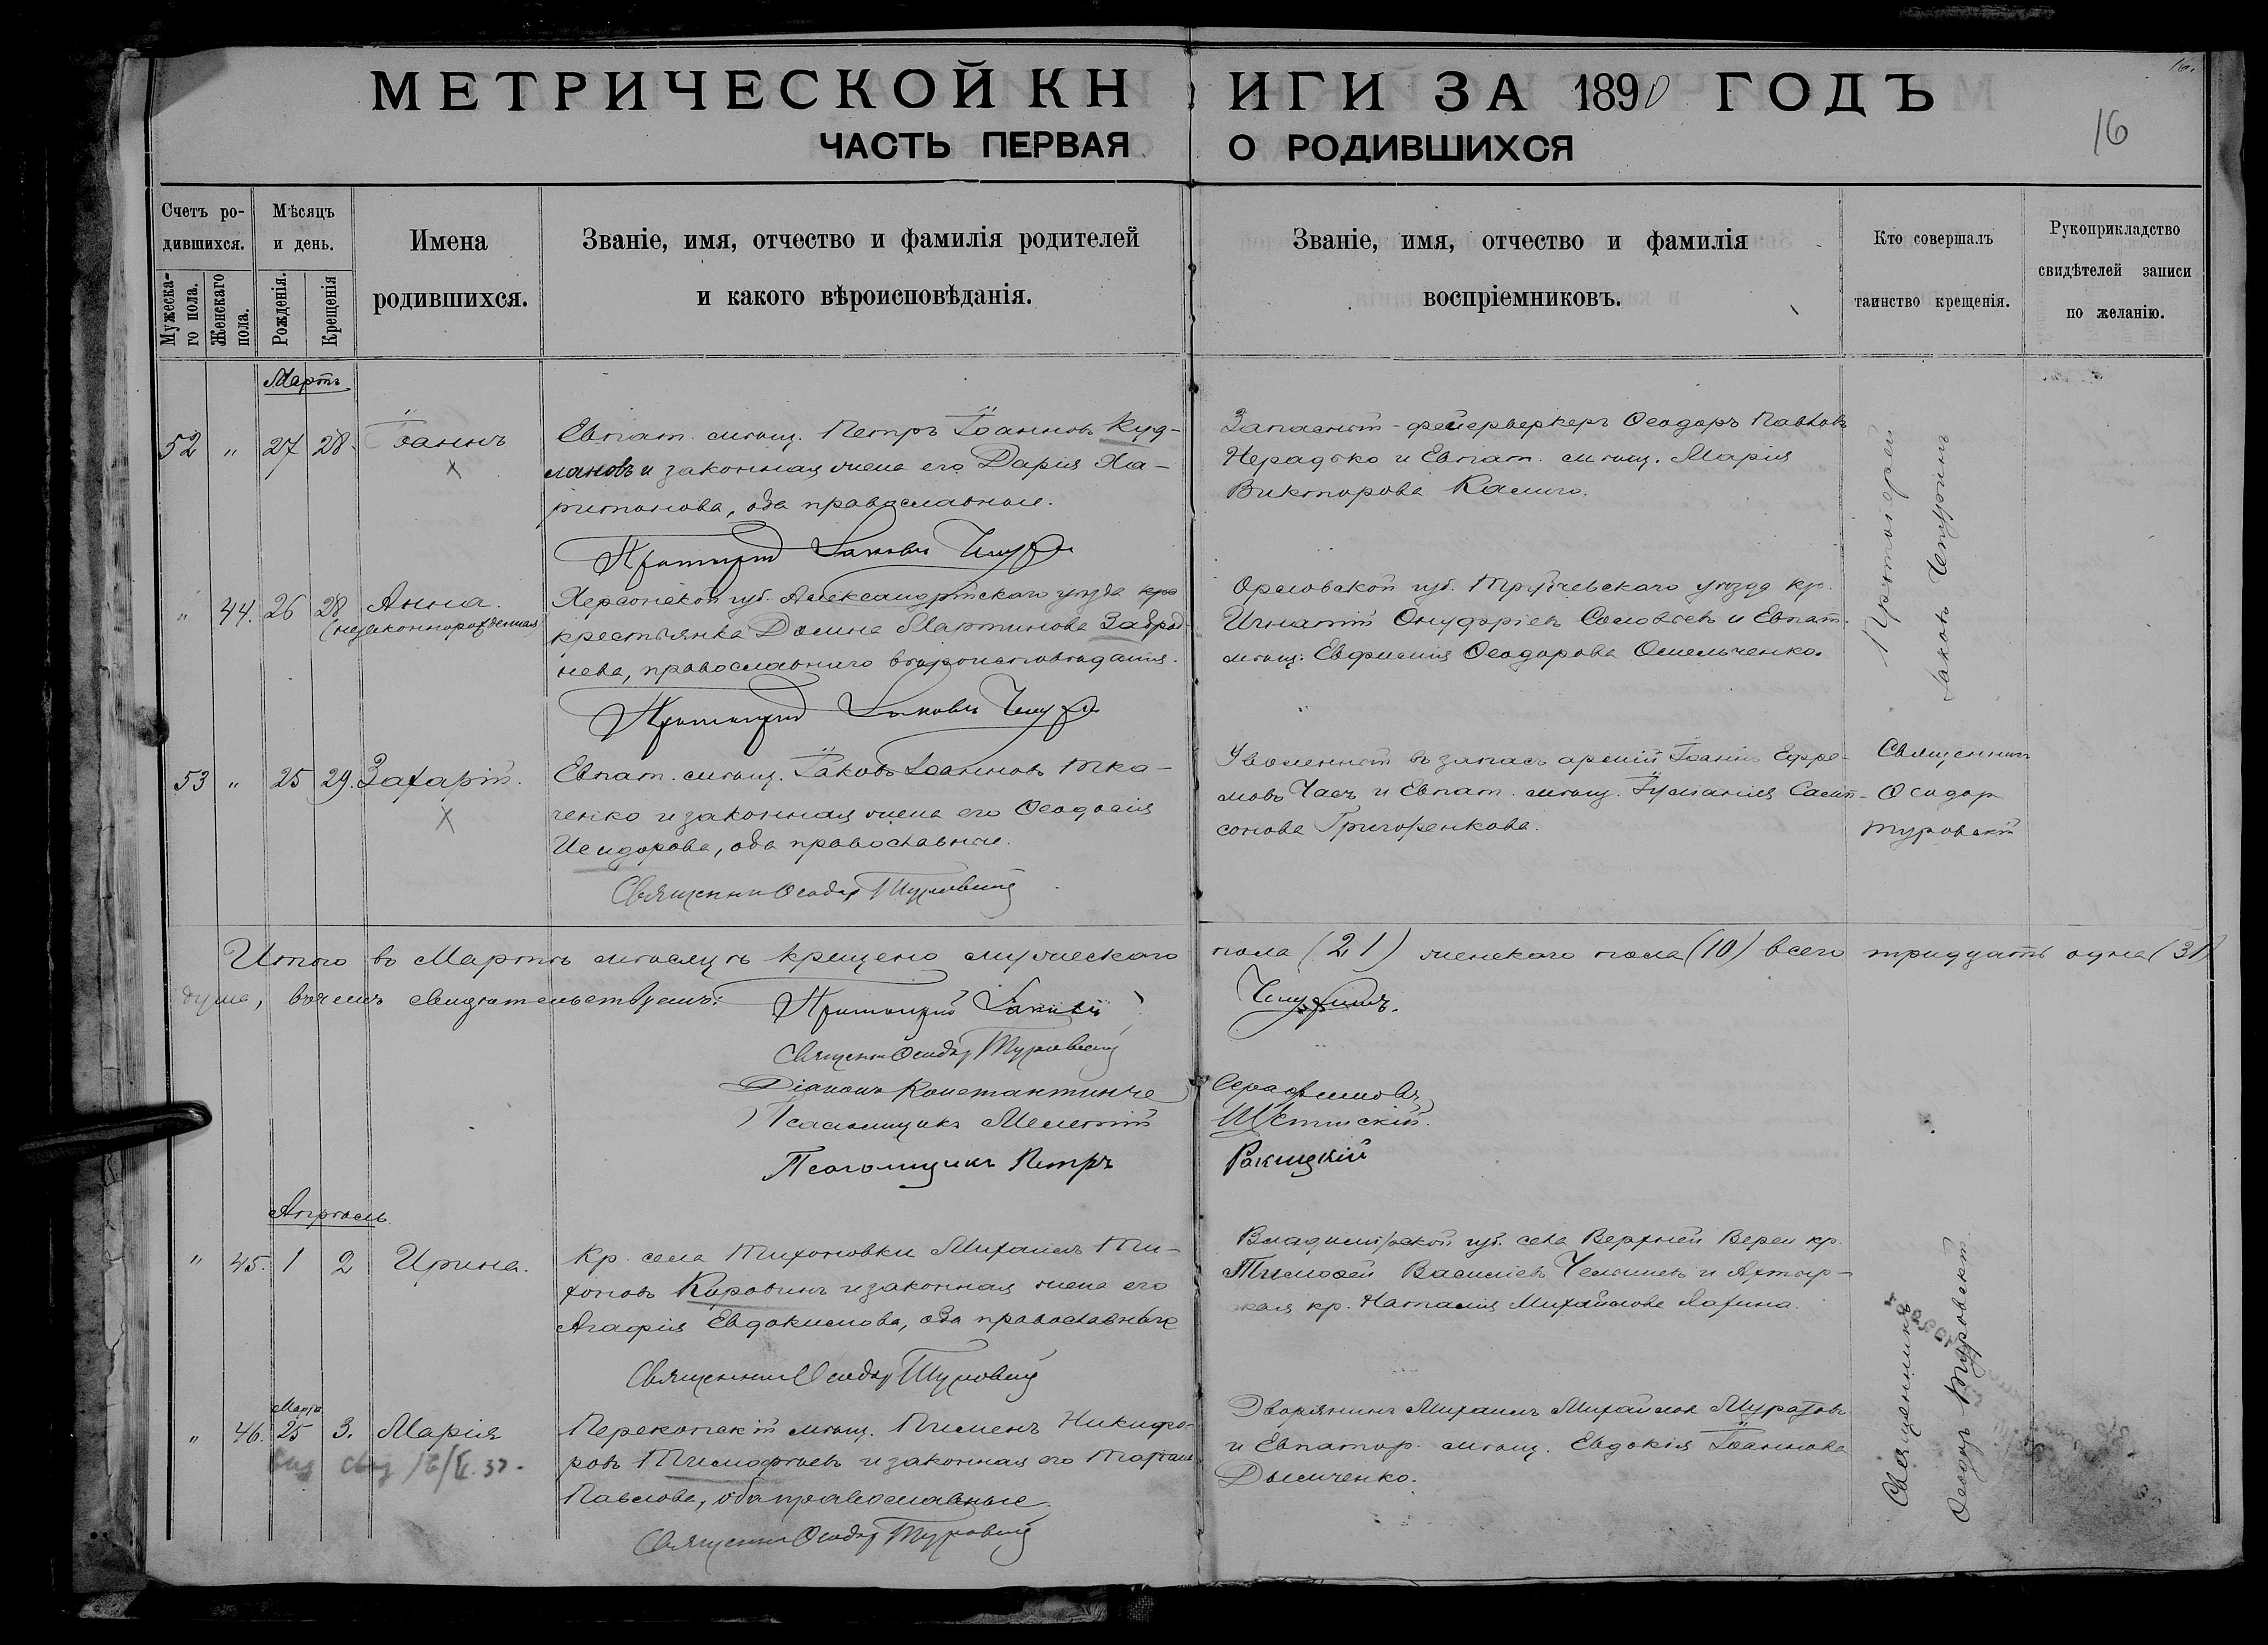 МЕТРИЧЕСКОЙ КНИГИ ЗА 1890 ГОДЪ
16.
ЧАСТЬ ПЕРВАЯ О РОДИВШИХСЯ
16
Счетъ родившихся.
Мужеска-
го пола.
Женскаго
пола.
Мѣсяцъ
и день.
Рожденія.
Крещенія
Имена
родившихся.
Званіе, имя, отчество и фамилія родителей
и какого вѣроисповѣданія.
Званіе, имя, отчество и фамилія
воспріемниковъ.
Кто совершалъ
таинство крещенія.
Рукоприкладство
свидѣтелей записи
по желанію.
Мартъ
52 " 27 28. Іоаннъ
Евпат. мѣщ. Петръ Іоанновъ Куд-
лановъ и законная жена его Дарія Ха-
ритонова, оба православные.
Протоіерей Іаковъ Чепуринъ
Запасный фейерверкеръ Ѳеодоръ Павловъ
и Евпат. мѣщ. Марія
Викторова
Протоіерей
Іаковъ Чепуринъ
" 44. 26 28 Анна.
(незаконнорожденная)
Херсонской губ. Александрійскаго уѣзда
крестьянка Домна Мартинова
нева, православнаго вѣроисповѣданія.
Протоіерей Іаковъ Чепуринъ
Орловской губ. Трубчевскаго уѣзда кр.
Игнатій Онуфріевъ Соловьевъ и Евпат.
мѣщ. Евфимія Ѳеодорова Омельченко.
53 " 25 29. Захарій.
Евпат. мѣщ. Іаковъ Іоанновъ Тка-
ченко и законная жена его Ѳеодосія
Исидорова, оба православные.
Священникъ Ѳеодоръ Туровскій
Уволенный въ запасъ арміи Іоаннъ Ефре-
мовъ Часъ и Евпат. мѣщ. Іуліанія Самп-
сонова Григоренкова.
Священникъ
Ѳеодоръ
Туровскій
Итого въ Мартѣ мѣсяцѣ крещено мужескаго пола (21) женскаго пола (10) всего тридцать одна (31)
душа, въ чемъ свидѣтельствуемъ:
Протоіерей Іаковъ Чепуринъ.
Священникъ Ѳеодоръ Туровскій
Діаконъ Константинъ Серафимовъ
Псаломщикъ Мелетій Щетинскій.
Псаломщикъ Петръ Ракицкій
Апрѣль
" 45. 1 2 Ирина.
Кр. села Тихоновки Михаилъ Ти-
хоновъ Коровинъ и законная жена его
Агафія Евдокимова, оба православные
Священникъ Ѳеодоръ Туровскій
Владимірской губ. села Верхней Вереи кр.
Тимоѳей Василіевъ Челышевъ и Ахтыр-
ская кр. Наталія Михайлова Лапина.
Священникъ
Ѳеодоръ Туровскій
Марта
" 46. 25 3. Марія
Перекопскій мѣщ. Пименъ Никифо-
ровъ Тимофѣевъ и законная его
Павлова, оба православные.
Священникъ Ѳеодоръ Туровскій
Дворянинъ Михаилъ Михайловъ Муратовъ
и Евпатор. мѣщ. Евдокія Іоаннова
Дымченко.